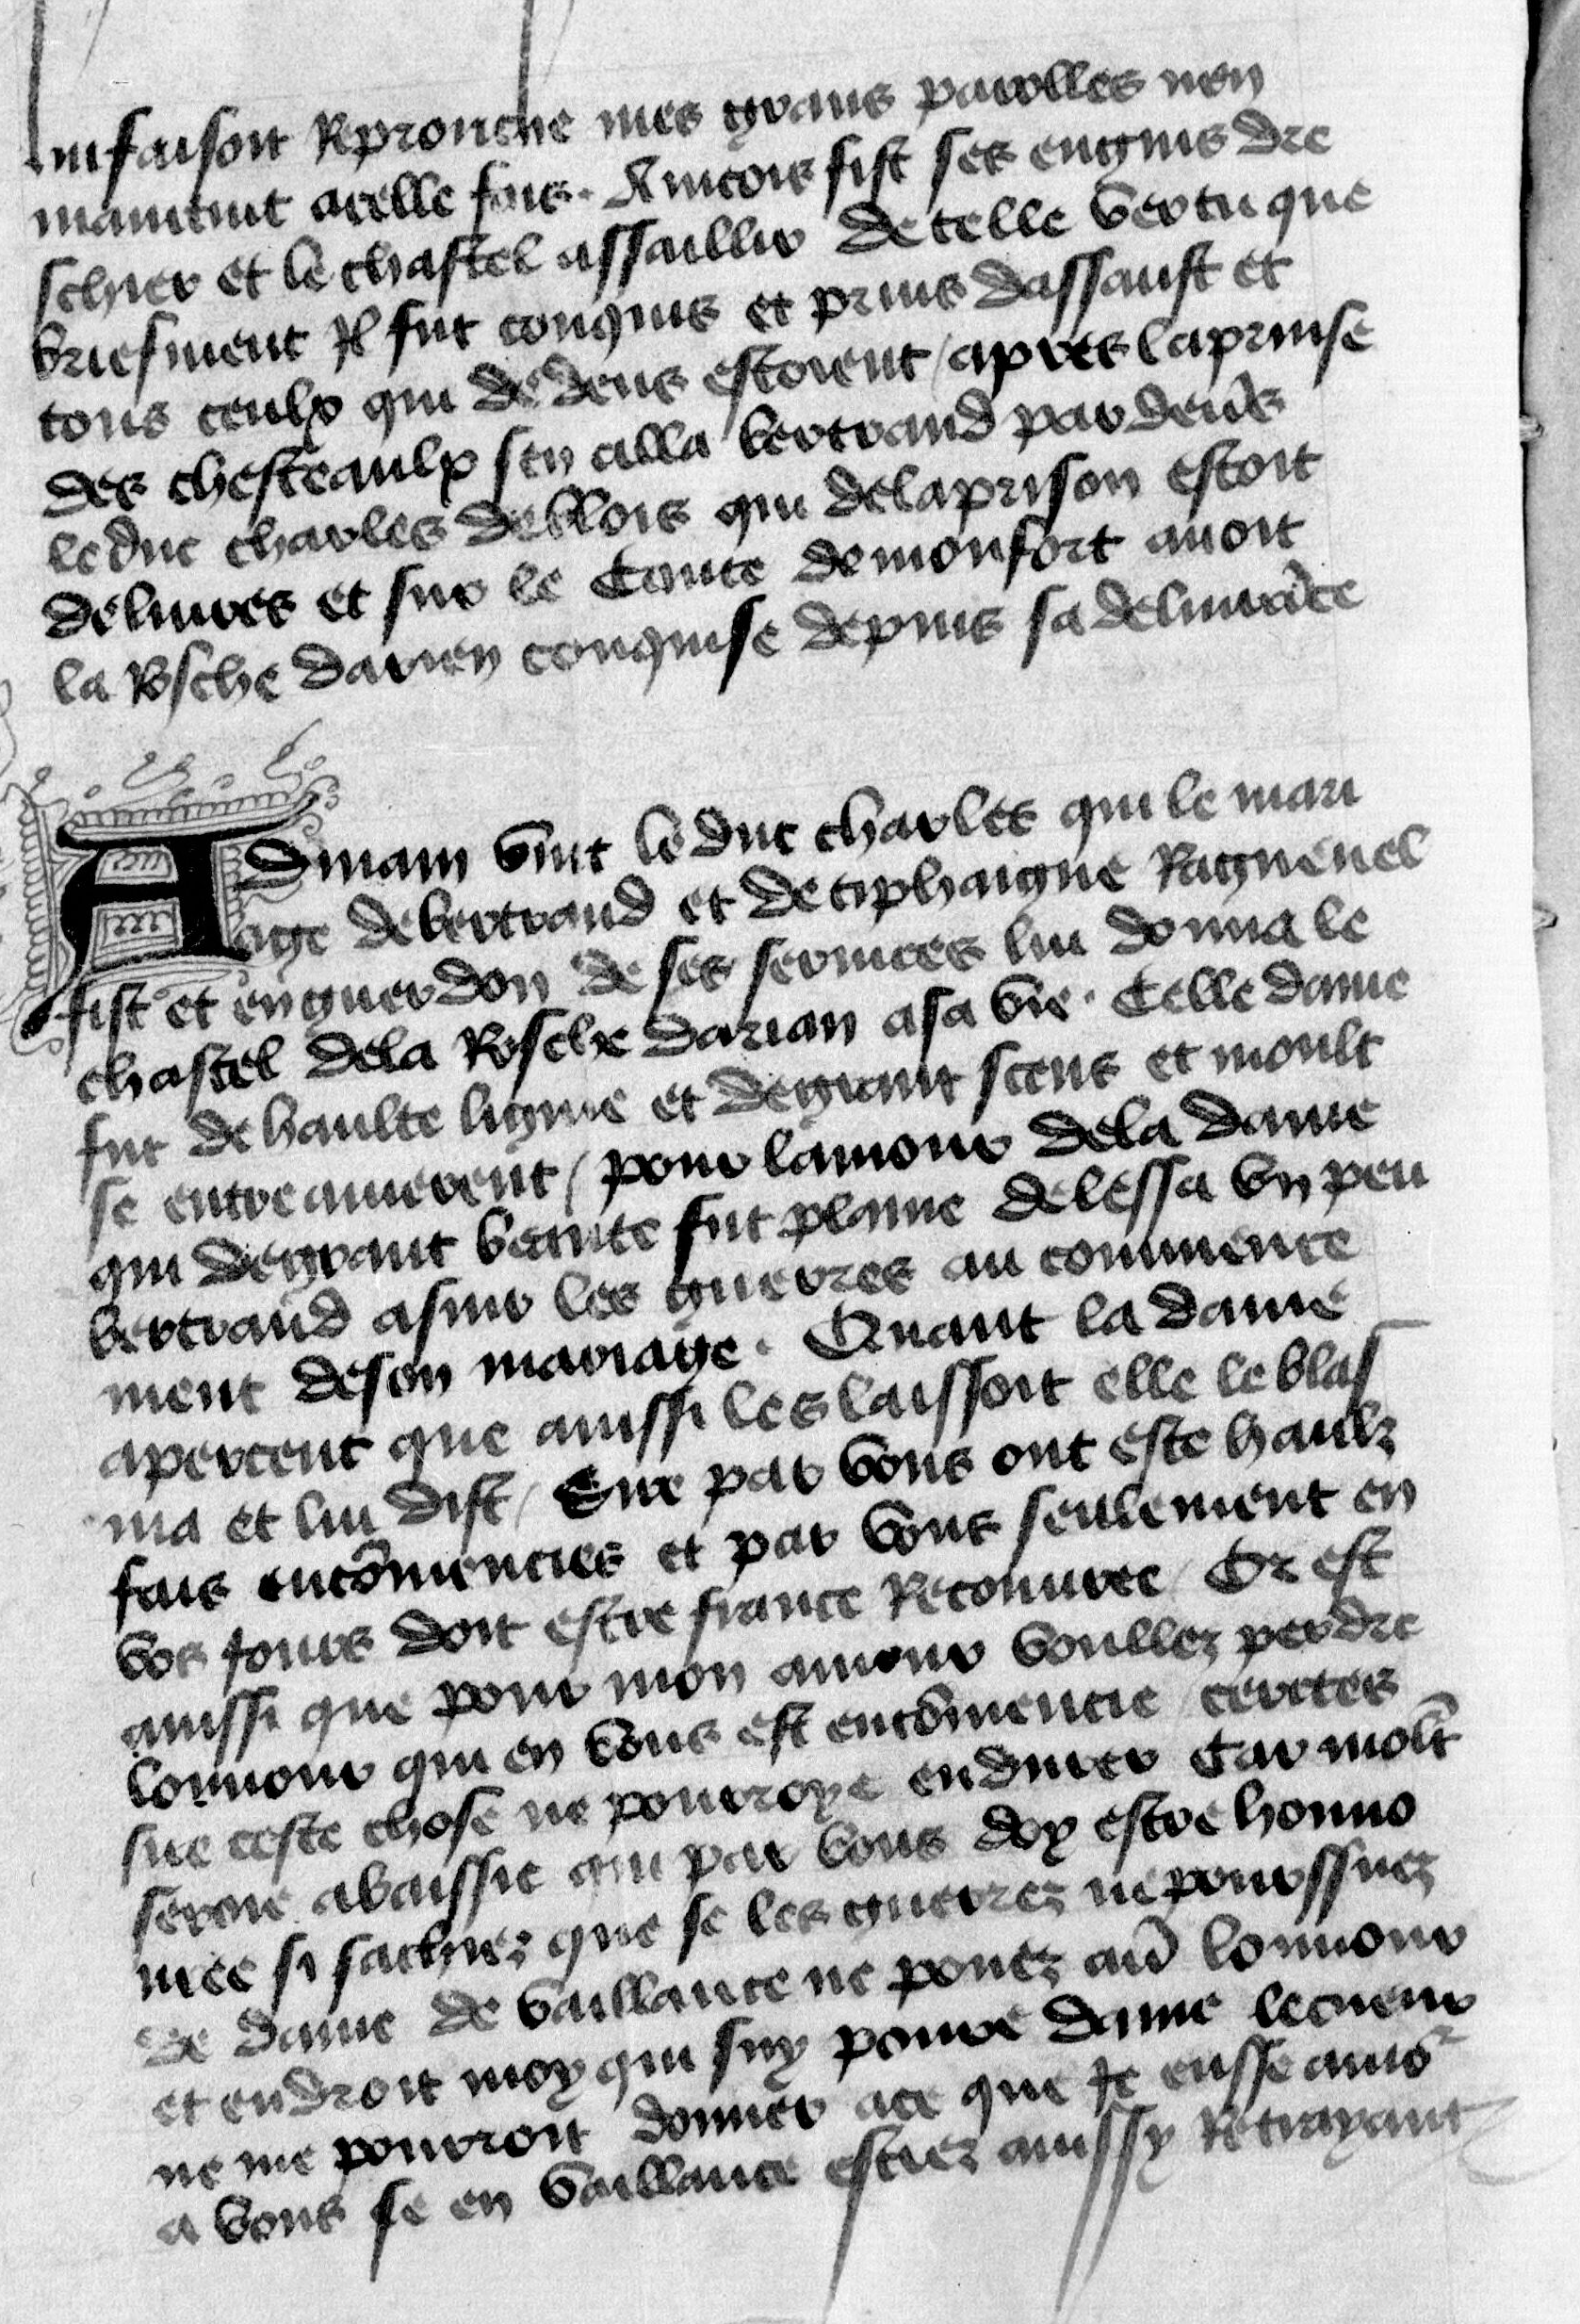 lui faisoit Reprouche mes grans parolles nen
maintint acelle fois. Aincois fist ses engins dre
schier et le chastel assaillir de telle vertu que
briefment Il fut conquis et prins dassault et
tous ceulx qui dedens estoient / apres laprinse
des chesteaulx sen alla bertrand par deūs
leduc charles debloys qui delaprison estoit
deliures et sur le Conte demonfort auoit
la Rosche darien conquise depuis sa deliurāce
A Dinam vint le duc charles qui le mari
age debertrand et de tiphaigne Raguenel
fist et enguerdon de ses seruices lui donna le
chastel dela Rosche darian asa vie. Celle dame
fut dehaulte ligne et degrant scens et moult
se entreamerent / pour lamour dela dame
qui degrant beaute fut plaine delessa vn peu
bertrand asuir les guerres au commence
ment deson mariage. Quant la dame
aperceut que ainssi les laissoit elle le blas
ma et lui dist / Sire par vous ont este haulz
fais encōmencies et par vous seulement en
vos jours doit estre france Recouuree / Or est
ainssi que pour mon amour voullez perdre
lonnour qui en vous est encōmencie / certes
sire ceste chose ne pourroye endurer Car molt
seroie abaissie qui par vous doy estre honno
ree si sachiez que se les guerrez ne poursuiez
de dame de vaillance ne pouez auoir lonnour
et endroit moy qui suy poure dame lecueur
ne me pourroit donner ace que Je eusse amor
a vous se en vaillance estiez ainssy Retrayant